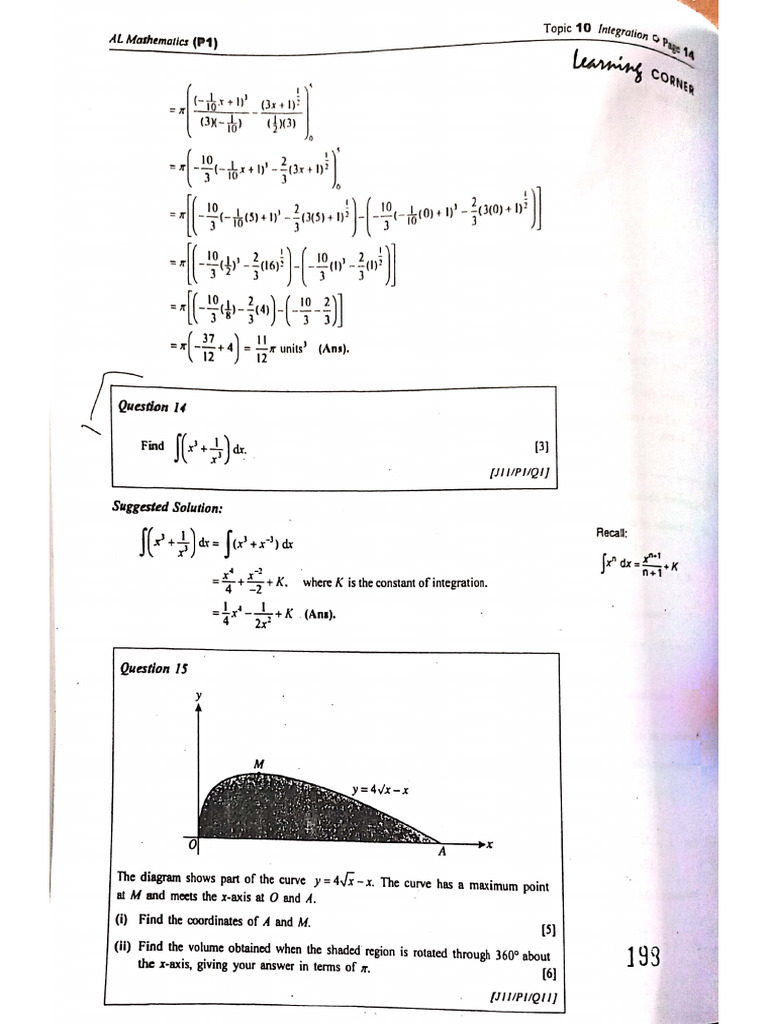 AL Mathematics (P1)
Topic 10 Integration ✪ Page 14
Learning CORNER
= π((-1/10 x + 1)³ / (3)(-1/10) - (3x + 1)^(1/2) / (1/2)(3))₀⁵
= π(-10/3(-1/10 x + 1)³ - 2/3(3x + 1)^(1/2))₀⁵
= π[(-10/3(-1/10(5) + 1)³ - 2/3(3(5) + 1)^(1/2)) - (-10/3(-1/10(0) + 1)³ - 2/3(3(0) + 1)^(1/2))]
= π[(-10/3(1/2)³ - 2/3(16)^(1/2)) - (-10/3(1)³ - 2/3(1)^(1/2))]
= π[(-10/3(1/8) - 2/3(4)) - (-10/3 - 2/3)]
= π(-37/12 + 4) = 11/12 π units³ (Ans).
Question 14
Find ∫(x³ + 1/x³) dx. [3]
[J11/P1/Q1]
Suggested Solution:
∫(x³ + 1/x³) dx = ∫(x³ + x⁻³) dx
= x⁴/4 + x⁻²/-2 + K, where K is the constant of integration.
= 1/4 x⁴ - 1/2x² + K (Ans).
Recall:
∫xⁿ dx = xⁿ⁺¹/n+1 + K
Question 15
y
M
y = 4√x - x
O
A
x
The diagram shows part of the curve y = 4√x - x. The curve has a maximum point
at M and meets the x-axis at O and A.
(i) Find the coordinates of A and M. [5]
(ii) Find the volume obtained when the shaded region is rotated through 360° about
the x-axis, giving your answer in terms of π. [6]
[J11/P1/Q11]
193